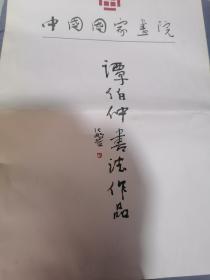 中国国家画院
谭伯仲书法作品